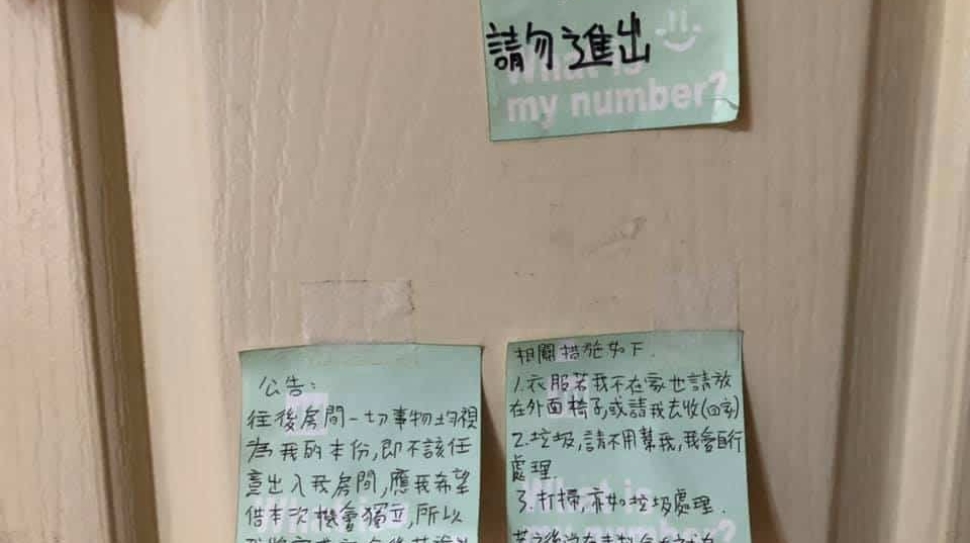 請勿進出
What is
my number?
公告：
往後房間一切事物均視
為我的本份,即不該任
意出入我房間,應我希望
借本次機會獨立,所以
相關措施如下.
1.衣服若我不在家也請放
在外面椅子,或請我去收(回家)
2.垃圾,請不用幫我,我會自行
處理
3.打掃,亦如垃圾處理.
What is
my number?